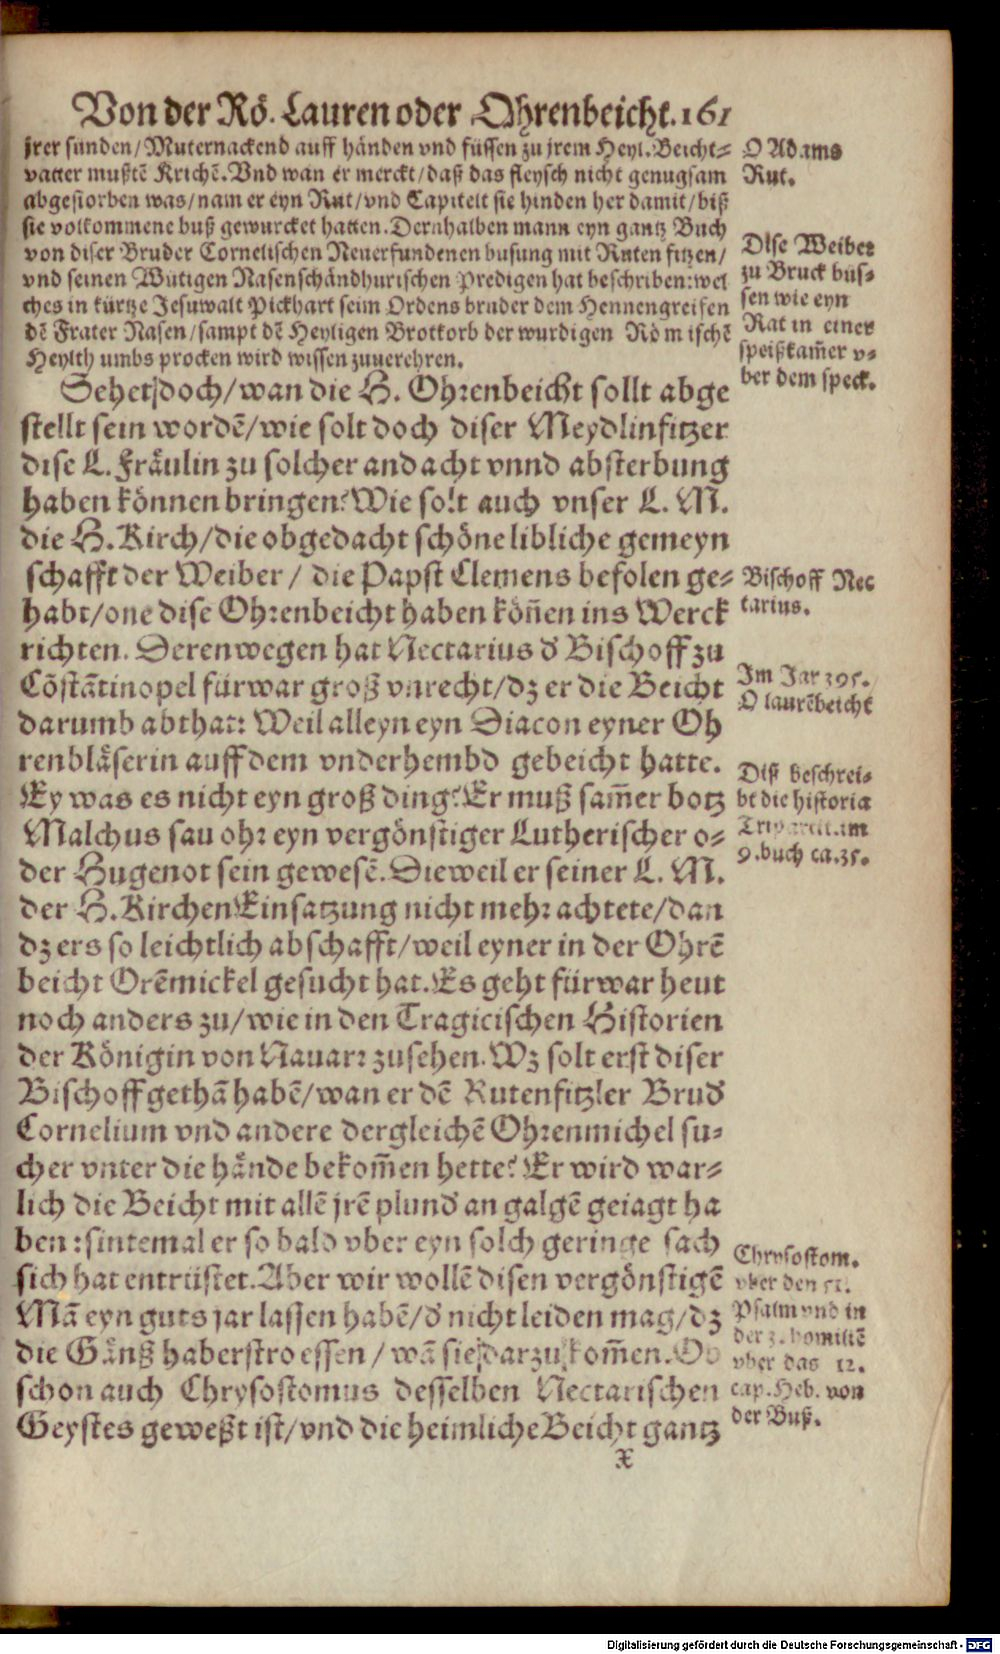 Von der Rö. Lauren oder Ohrenbeicht. 161
jrer sünden/Muternackend auff händen vnd füssen zu jrem Heyl. Beicht-
vatter mußtē Krichē. Vnd wan er merckt/daß das fleysch nicht genugsam
abgestorben was/nam er eyn Rut/vnd Capitelt sie hinden her damit/biß
sie volkommene buß gewurcket hatten. Dernhalben mann eyn gantz Buch
von diser Bruder Cornelischen Neuerfundenen busung mit Ruten fitzen/
vnd seinen Wütigen Nasenschändhurischen Predigen hat beschriben: wel
ches in kürtze Jesuwalt Pickhart seim Ordens bruder dem Hennengreifen
dē Frater Nasen/sampt dē Heyligen Brotkorb der wurdigen Römischē
Heylthumbs procken wird wissen zuuerehren.
Sehet doch/wan die H. Ohrenbeicht sollt abge
stellt sein wordē/wie solt doch diser Meydlinfitzer
dise L. Fräulin zu solcher andacht vnnd absterbung
haben können bringen? Wie solt auch vnser L. M.
die H. Kirch/die obgedacht schöne libliche gemeyn
schafft der Weiber/die Papst Clemens befolen ge-
habt/one dise Ohrenbeicht haben kön̄en ins Werck
richten. Derenwegen hat Nectarius d' Bischoff zu
Cōstātinopel fürwar groß vnrecht/dz er die Beicht
darumb abthat: Weil alleyn eyn Diacon eyner Oh
renbläserin auff dem vnderhembd gebeicht hatte.
Ey was es nicht eyn groß ding? Er muß sam̄er botz
Malchus sau ohr eyn vergönstiger Lutherischer o-
der Hugenot sein gewesē. Dieweil er seiner L. M.
der H. Kirchen Einsatzung nicht mehr achtete/dan
dz ers so leichtlich abschafft/weil eyner in der Ohrē
beicht Orēmickel gesucht hat. Es geht fürwar heut
noch anders zu/wie in den Tragicischen Historien
der Königin von Nauarr zusehen. Wz solt erst diser
Bischoff gethā habē/wan er dē Rutenfitzler Brud'
Cornelium vnd andere dergleichē Ohrenmichel su-
cher vnter die hände bekom̄en hette? Er wird war-
lich die Beicht mit allē jrē plund' an galgē geiagt ha
ben: sintemal er so bald vber eyn solch geringe sach
sich hat entrüstet. Aber wir wollē disen vergönstigē
Mā eyn guts jar lassen habē/d' nicht leiden mag/dz
die Gänß haberstro essen/wā sie darzu kom̄en. Ob
schon auch Chrysostomus desselben Nectarischen
Geystes geweßt ist/vnd die heimliche Beicht gantz
X
O Adams
Rut.
Dise Weiber
zu Bruck büs-
sen wie eyn
Rat in einer
speißkam̄er v-
ber dem speck.
Bischoff Nec
tarius.
Im Jar 395.
O laurēbeicht
Diß beschrei-
bt die historia
Tripartit. im
9. buch ca. 35.
Chrysostom.
vber den 51.
Psalm vnd in
der 3. homiliē
vber das 12.
cap. Heb. von
der Buß.
Digitalisierung gefördert durch die Deutsche Forschungsgemeinschaft - DFG